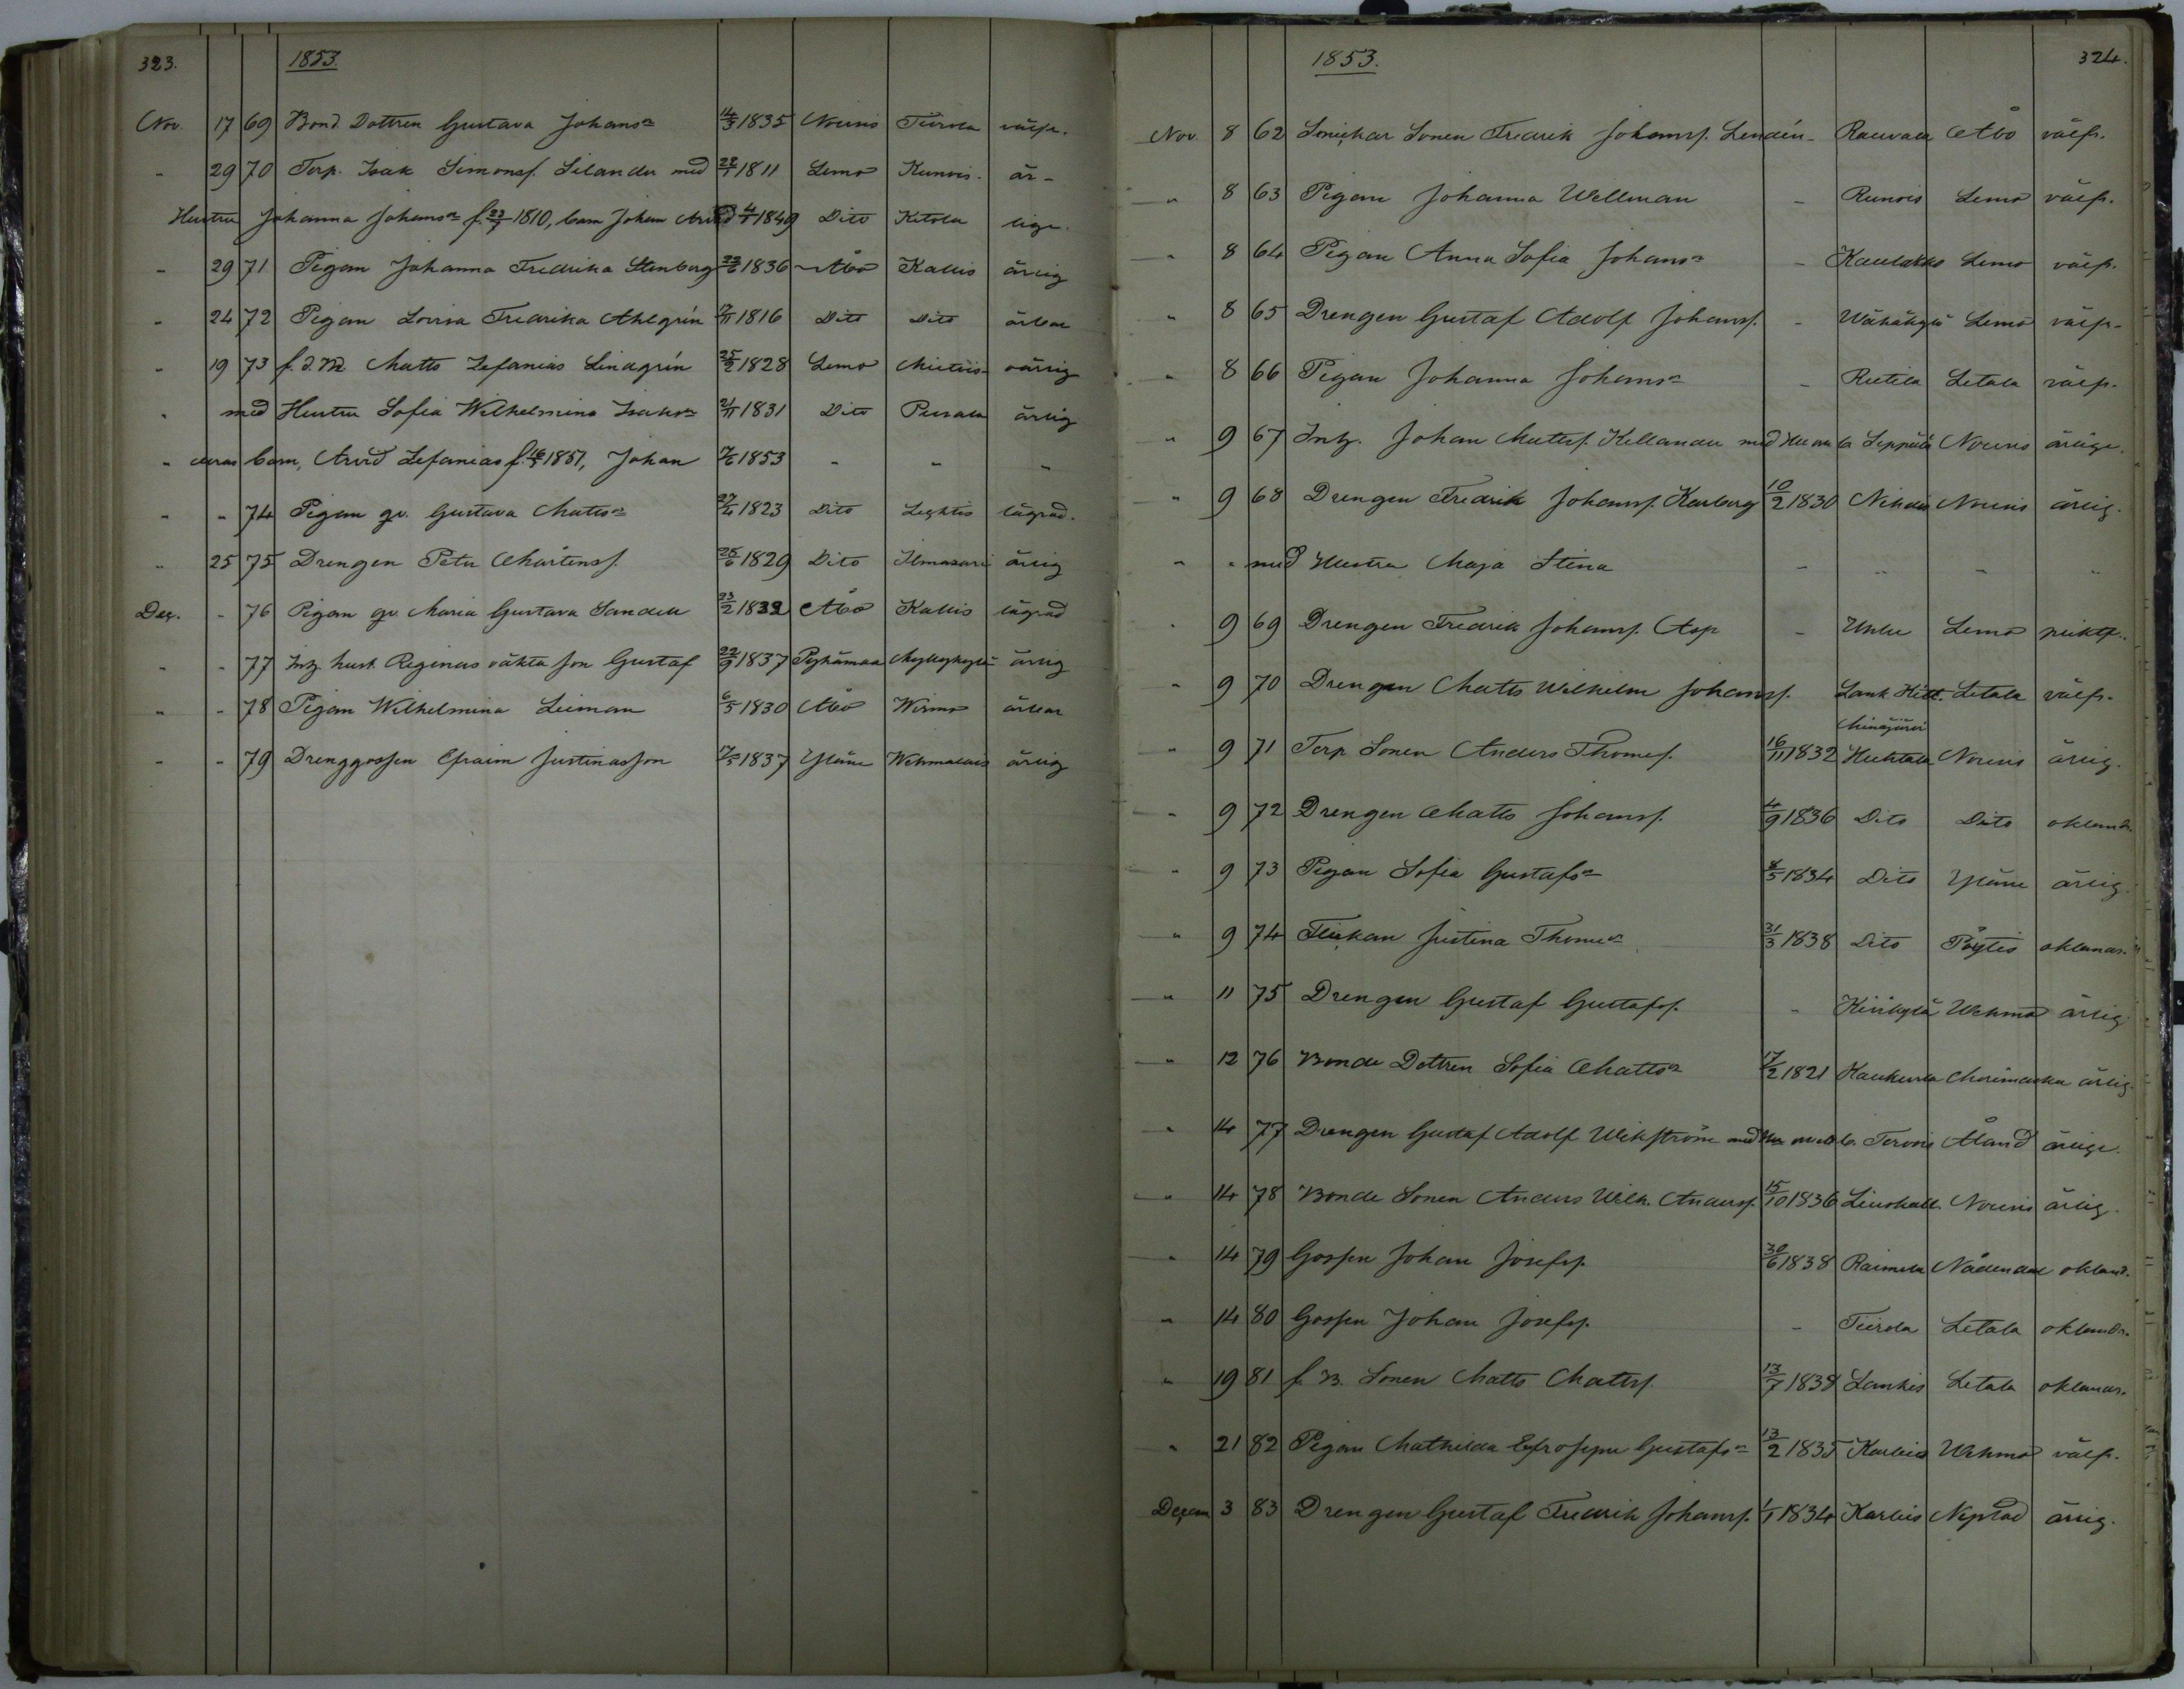 323. 1853.
Nov. 17 69 Bond. Dottren Gustava Johans:r 14/3 1835 Nousis Tiirola välfr.
- 29 70 Torp. Isak Simonss. Silander med 28/1 1811 Lemo Kunois. är-
Hustru Johanna Johans:r f. 23/7 1810, barn Johan Arvid 4/1 1849 Dito Ketola lige.
- 29 71 Pigan Johanna Fredrika Stenberg 22/6 1836 Åbo Kallis ärlig
- 24 72 Pigan Lovisa Fredrika Ahlgrén 17/11 1816 Dito Dito ärbar
- 19 73 f.d. M. Matts Zefanias Lindgrén 25/2 1828 Lemo ärlig
- med Hustru Sofia Wilhelmina Isaks:r 21/11 1831 Dito ärlig
- deras barn, Arvid Zefanias f. 16/5 1851, Johan 7/6 1853 - - -
- - 74 Pigan qv. Gustava Matts:r 27/4 1823 Dito Leghtis lägrad.
- 25 75 Drengen Peter Mårtenss. 26/6 1829 Dito Ilmasuri ärlig
Dec. - 76 Pigan qv. Maria Gustava Sandell 23/2 1832 Åbo Kallis lägrad
- - 77 Inh. hust. Reginas oäkta son Gustaf 22/9 1837 Pyhämaa Myllykylä ärlig
- - 78 Pigan Wilhelmina Leiman 6/5 1830 Åbo Wirmo ärbar
- - 79 Drenggossen Efraim Justinasson 17/5 1837 Yläne Wehmalais ärlig
1853. 324.
Nov. 8 62 Snickar Sonen Fredrik Johanss. Lendén - Rauvala Åbo välfr.
" 8 63 Pigan Johanna Wellman - Kunois Lemo välfr.
" 8 64 Pigan Anna Sofia Johans:r - Kaulakko Lemo välfr.
" 8 65 Drengen Gustaf Adolf Johanss. - Wähäkylä Lemo välfr.
" 8 66 Pigan Johanna Johans:r - Rutila Letala välfr.
" 9 67 Inh. Johan Mattss. Kellander med Hu o b Seppälä Nousis ärlige.
" 9 68 Drengen Fredrik Johanss. Karberg 10/2 1830 Nousis ärlig.
" " med Hustru Maja Stina - " - "
" 9 69 Drengen Fredrik Johanss. Asp - Lemo
" 9 70 Drengen Matts Wilhelm Johanss. Lank Hilt. Letala välfr.
Minäjärvi
" 9 71 Torp Sonen Anders Thomess. 16/11 1832 Huhtala Nousis ärlig.
" 9 72 Drengen Matts Johanss. 4/9 1836 Dito Dito oklandr.
" 9 73 Pigan Sofia Gustafs:r 8/5 1834 Dito Yläne ärlig.
" 9 74 Flickan Justina Thomas:r 31/3 1838 Dito Pöytis oklandr.
" 11 75 Drengen Gustaf Gustafss. - Kirikylä Wehmo ärlig
" 12 76 Bonde Dottren Sofia Matts:r 17/2 1821 Haukurla Merimasku ärlig.
" 14 77 Drengen Gustaf Adolf Wikström med Hu o b. Tervois Åland ärlige.
" 14 78 Bonde Sonen Anders Wilh. Anderss. 15/10 1836 Linskall. Nousis ärlig
" 14 79 Gossen Johan Josefss. 30/6 1838 Raimela Nådendal okland.
" 14 80 Gossen Johan Josefss. - Tiirola Letala oklandr.
" 19 81 f. B. Sonen Matts Mattss. 13/7 1838 Lankis Letala oklandr.
" 21 82 Pigan Mathilda Eufrosyne Gustafs:r 13/2 1835 Karlus Wehmo välfr.
Decem 3 83 Drengen Gustaf Fredrik Johanss. 1/1 1834 Karlus Nystad ärlig.